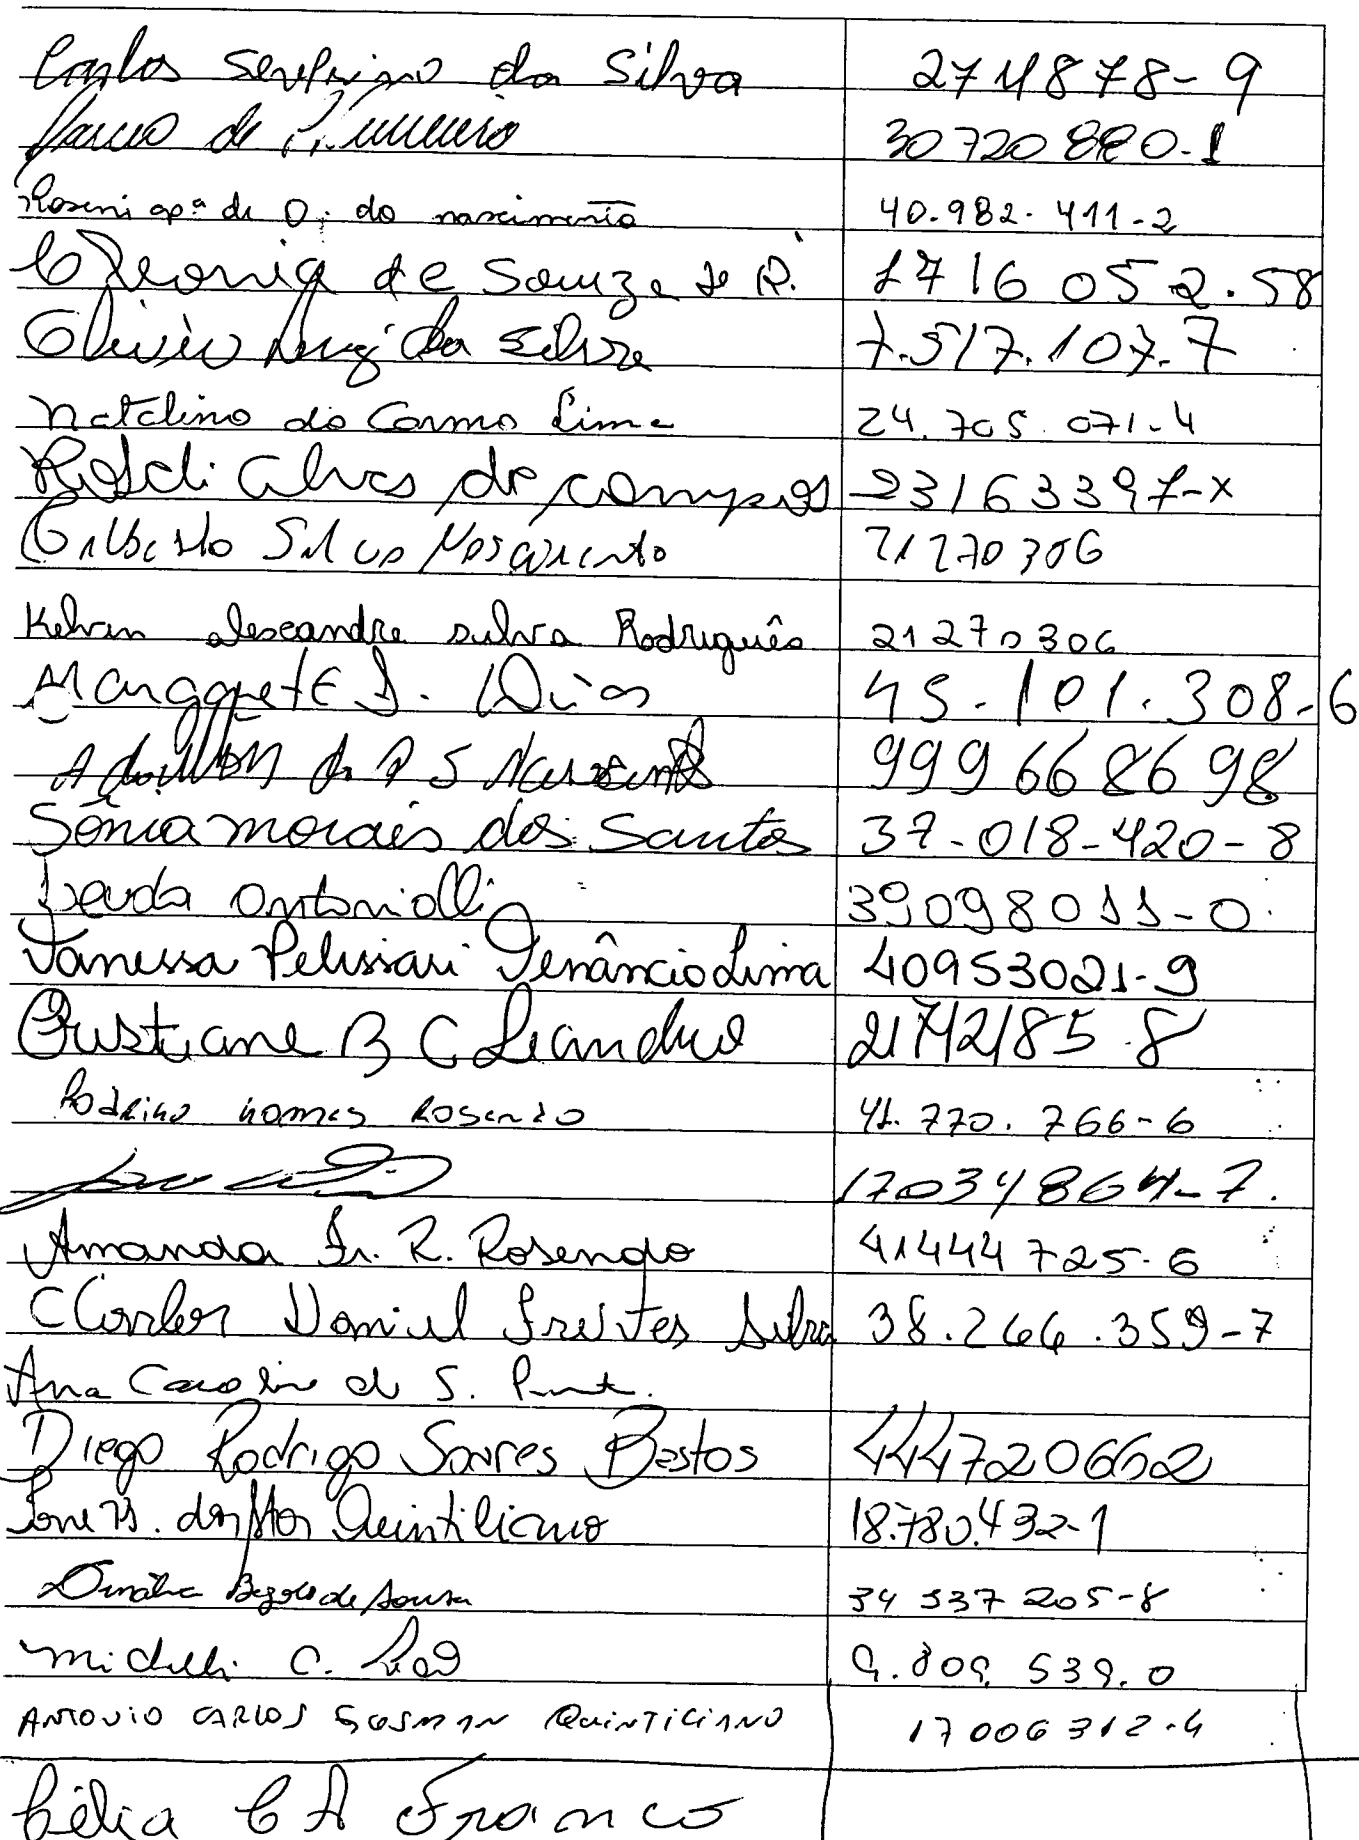 Carlos Severino da Silva 274878-9
de 30720880-1
Roseni apª de O. do nascimento 40.982.411-2
de Souza de R. 1716052.58
da Silva 7.517.107-7
Natalino do Carmo Lima 24.705.071-4
Alves de campos 23163397-x
Gilberto Silva Nascimento 21270306
Kelvin alexandre silva Rodriguês 21270306
Margarete D. Dias 45-101.308-6
S Nascimento 999668698
Sônia morais dos Santos 37-018-420-8
Leuda Antoniolli 39098011-0
Vanessa Pelissari Venâncio Lima 40953021-9
Cristiane B C Leandro 21742185-8
Rodrigo Gomes Rosendo 41.770.766-6
17034864-7.
Amanda Fr. R. Rosendo 41444725-6
Charles Daniel Freites Silva 38.266.359-7
Ana Caroline de S.
Diego Rodrigo Soares Bastos 444720662
Quintiliano 18.780.432-1
de Sousa 34 537 205-8
michelli C. 9.809.539.0
ANTONIO CARLOS QUINTILIANO 17006312-4
Célia C A Franco